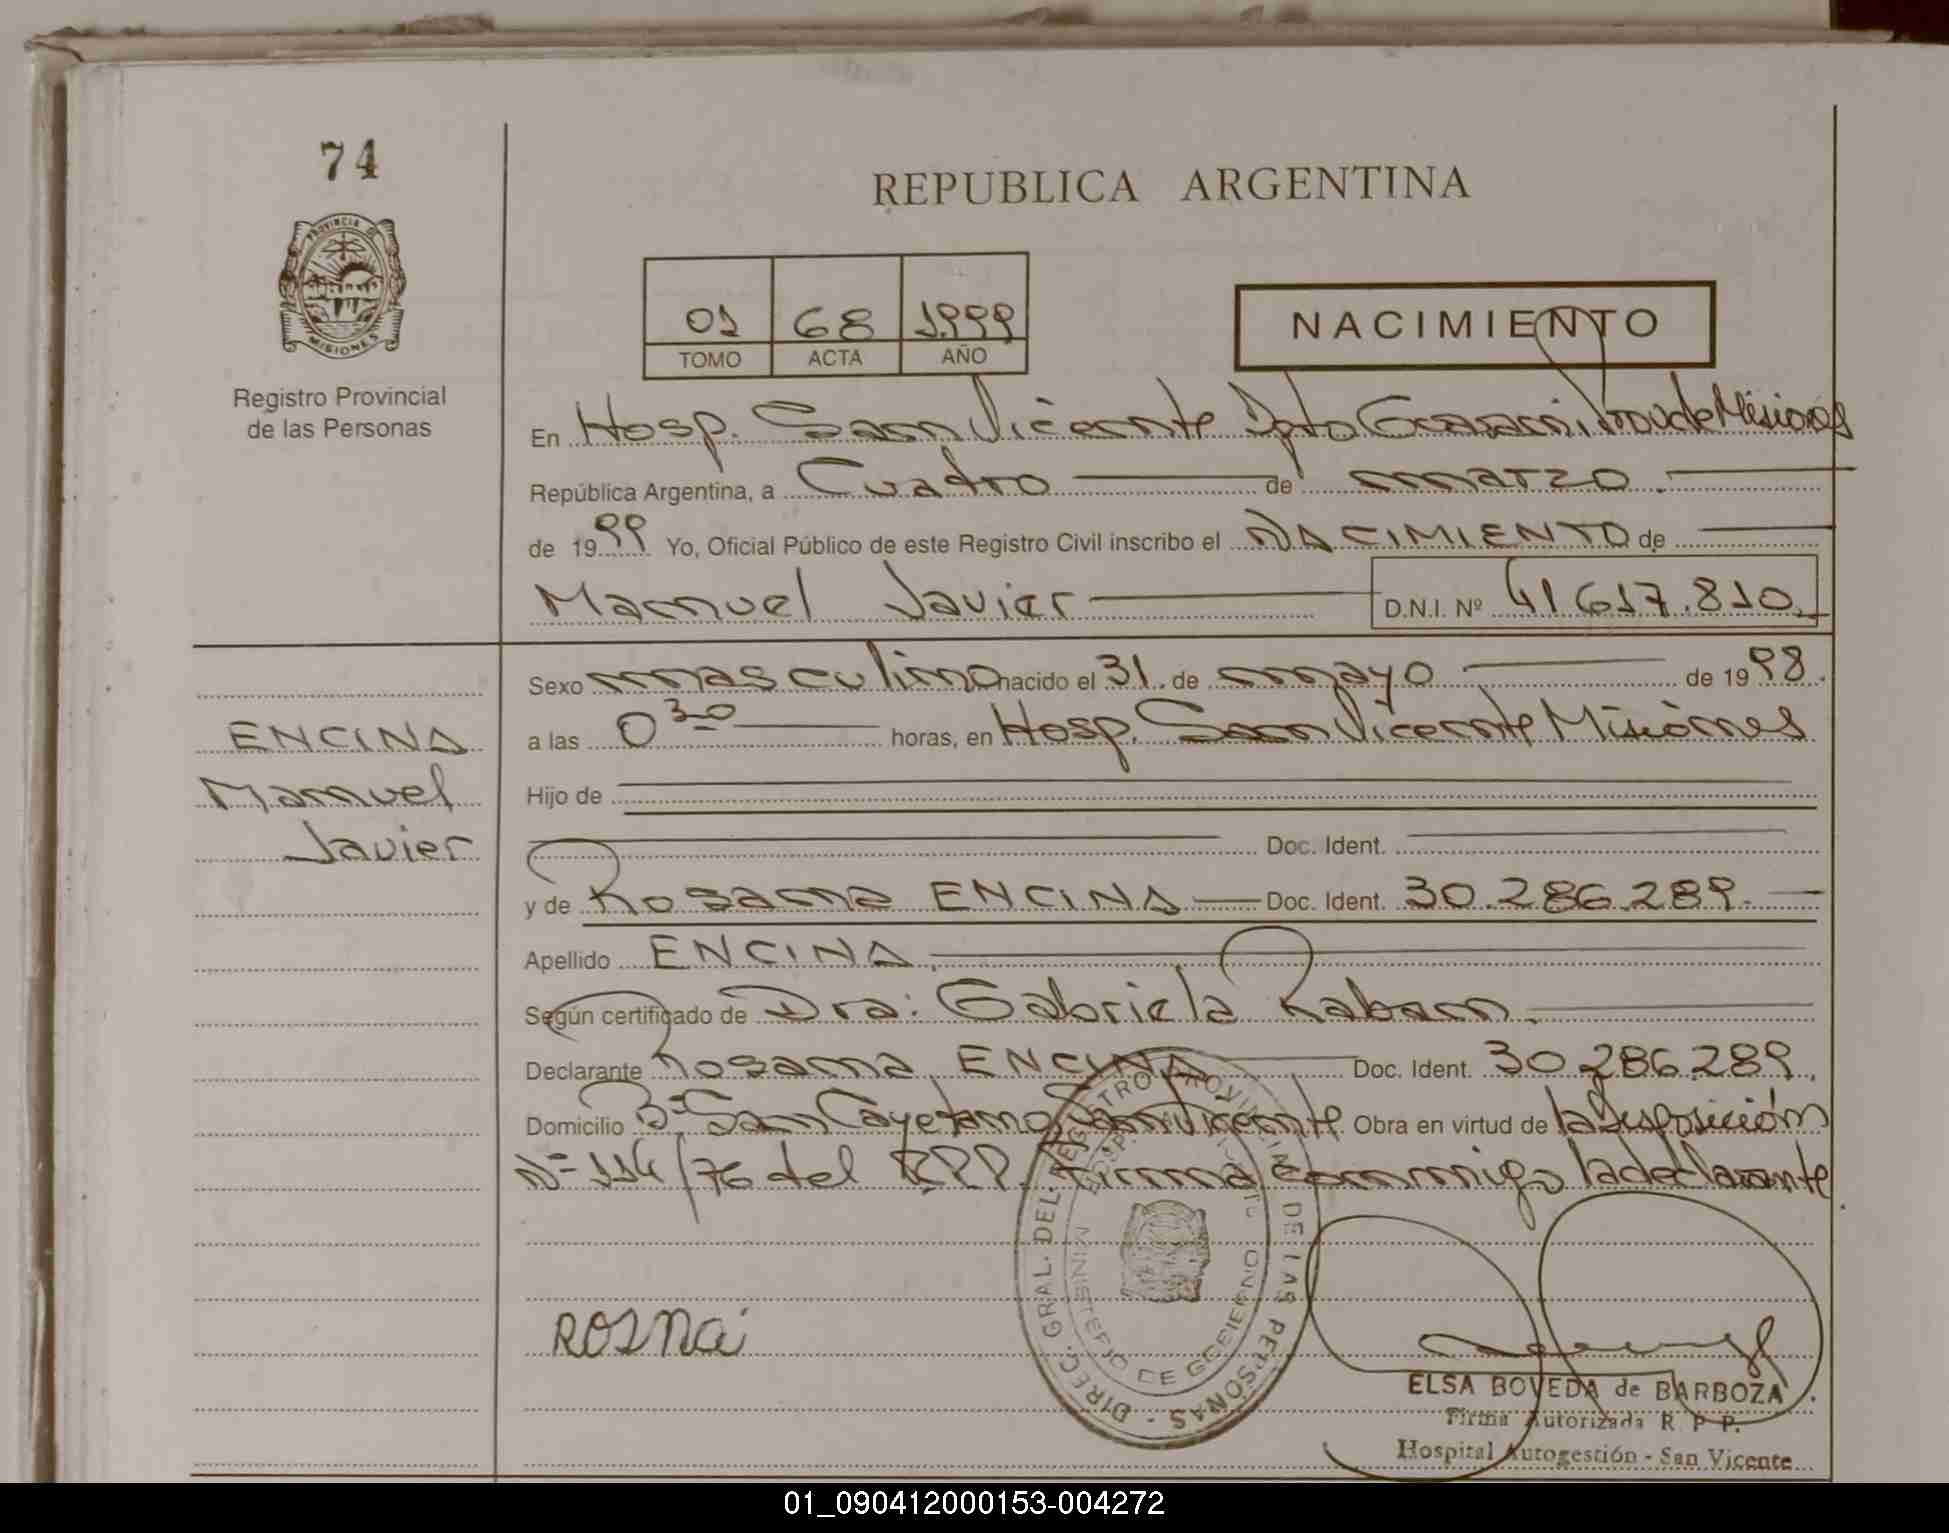 74
REPUBLICA ARGENTINA
PROVINCIA DE
MISIONES
Registro Provincial
de las Personas
01 68 1.999
TOMO ACTA AÑO
NACIMIENTO
En Hosp. San Vicente Dpto Guarani, Prov de Misiones
República Argentina, a Cuatro de marzo.
de 1999 Yo, Oficial Público de este Registro Civil inscribo el NACIMIENTO de
Manuel Javier D.N.I. Nº 41617.810.
Sexo masculino nacido el 31. de mayo de 1998.
a las 0 30 horas, en Hosp. San Vicente Misiones
Hijo de
Doc. Ident.
y de Rosana ENCINA Doc. Ident. 30.286.289.
Apellido ENCINA.
Según certificado de Dra: Gabriela Raban.
Declarante Rosana ENCINA Doc. Ident. 30.286.289.
Domicilio Bº San Cayetano San Vicente Obra en virtud de la Disposición
Nº 114/76 del R.P.P. Firma conmigo la declarante.
ENCINA
Manuel
Javier
ROSNA
DIREC. GRAL. DEL REGISTRO PROVINCIAL DE LAS PERSONAS
MINISTERIO DE GOBIERNO
ELSA BOVEDA de BARBOZA
Firma Autorizada R. P. P.
Hospital Autogestión - San Vicente
01_090412000153-004272